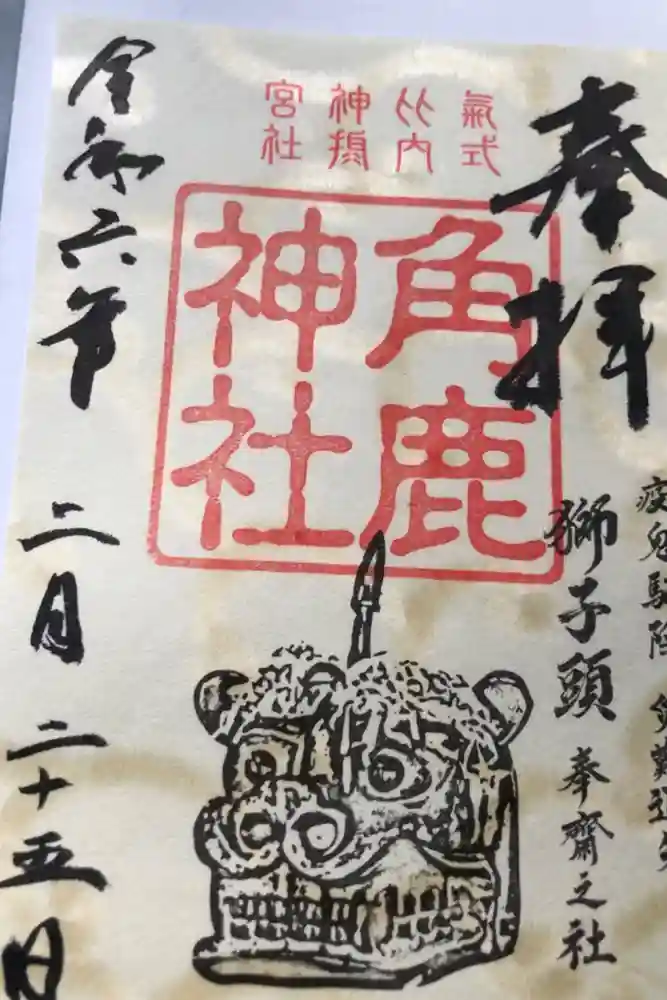 奉拝
疫鬼駆除
獅子頭 奉齋之社
氣比神宮
式内摂社
角鹿
神社
令和六年
二月二十五日